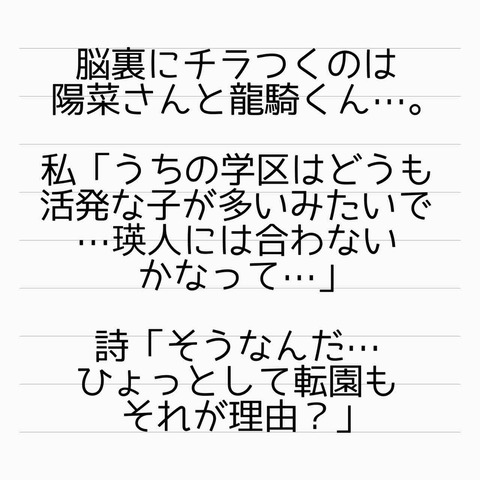 脳裏にチラつくのは
陽菜さんと龍騎くん…。
私「うちの学区はどうも
活発な子が多いみたいで
…瑛人には合わない
かなって…」
詩「そうなんだ…
ひょっとして転園も
それが理由？」